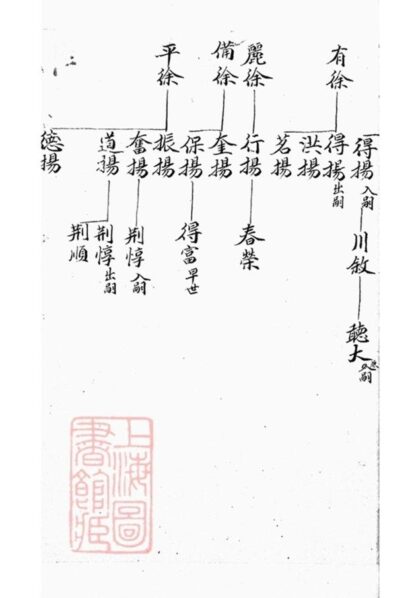 有徐
麗徐
備徐
平徐
得揚 入嗣
得揚 出嗣
洪揚
茗揚
行揚
奎揚
保揚
振揚
奮揚
道揚
德揚
川敘
春榮
得富 早世
荆惇 入嗣
荆惇 出嗣
荆順
聽大 嗣
上海圖
書館藏